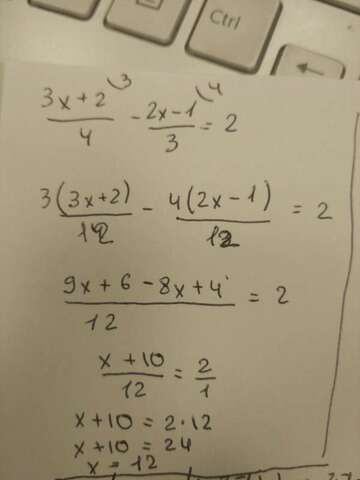 Ctrl
(3x+2)/4 ⁽³ - (2x-1)/3 ⁽⁴ = 2
3(3x+2)/12 - 4(2x-1)/12 = 2
(9x+6-8x+4)/12 = 2
(x+10)/12 = 2/1
x+10 = 2·12
x+10 = 24
x = 12